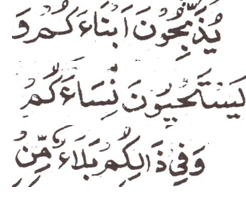 يُذَبِّحُونَ اَبْنَاءَكُمْ وَ
يَسْتَحْيُونَ نِسَاءَكُمْ
وَفِي ذَالِكُمْ بَلَاءٌ مِّنْ